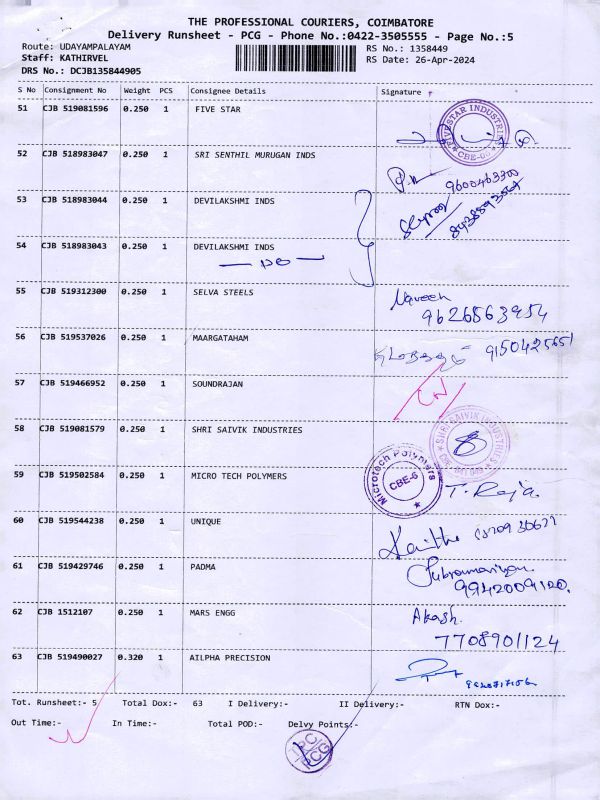 THE PROFESSIONAL COURIERS, COIMBATORE
Delivery Runsheet - PCG - Phone No.:0422-3505555 - Page No.:5
Route: UDAYAMPALAYAM
Staff: KATHIRVEL
DRS No.: DCJB135844905
RS No.: 1358449
RS Date: 26-Apr-2024
S No Consignment No Weight PCS Consignee Details Signature
51 CJB 519081596 0.250 1 FIVE STAR
FIVESTAR INDUSTRIES
CBE-6
52 CJB 518983047 0.250 1 SRI SENTHIL MURUGAN INDS
9600463300
53 CJB 518983044 0.250 1 DEVILAKSHMI INDS
54 CJB 518983043 0.250 1 DEVILAKSHMI INDS
55 CJB 519312300 0.250 1 SELVA STEELS
Naveen
9626563954
56 CJB 519537026 0.250 1 MAARGATAHAM
9150425651
57 CJB 519466952 0.250 1 SOUNDRAJAN
58 CJB 519081579 0.250 1 SHRI SAIVIK INDUSTRIES
SHRI SAIVIK INDUSTRIES
59 CJB 519502584 0.250 1 MICRO TECH POLYMERS
Microtech Polymers
CBE-6
T. Raja.
60 CJB 519544238 0.250 1 UNIQUE
61 CJB 519429746 0.250 1 PADMA
Subramaniyan.
9942009120.
62 CJB 1512107 0.250 1 MARS ENGG
Akash.
7708901124
63 CJB 519490027 0.320 1 AILPHA PRECISION
Tot. Runsheet:- 5 Total Dox:- 63 I Delivery:- II Delivery:- RTN Dox:-
Out Time:- In Time:- Total POD:- Delvy Points:-
TPC
PCG